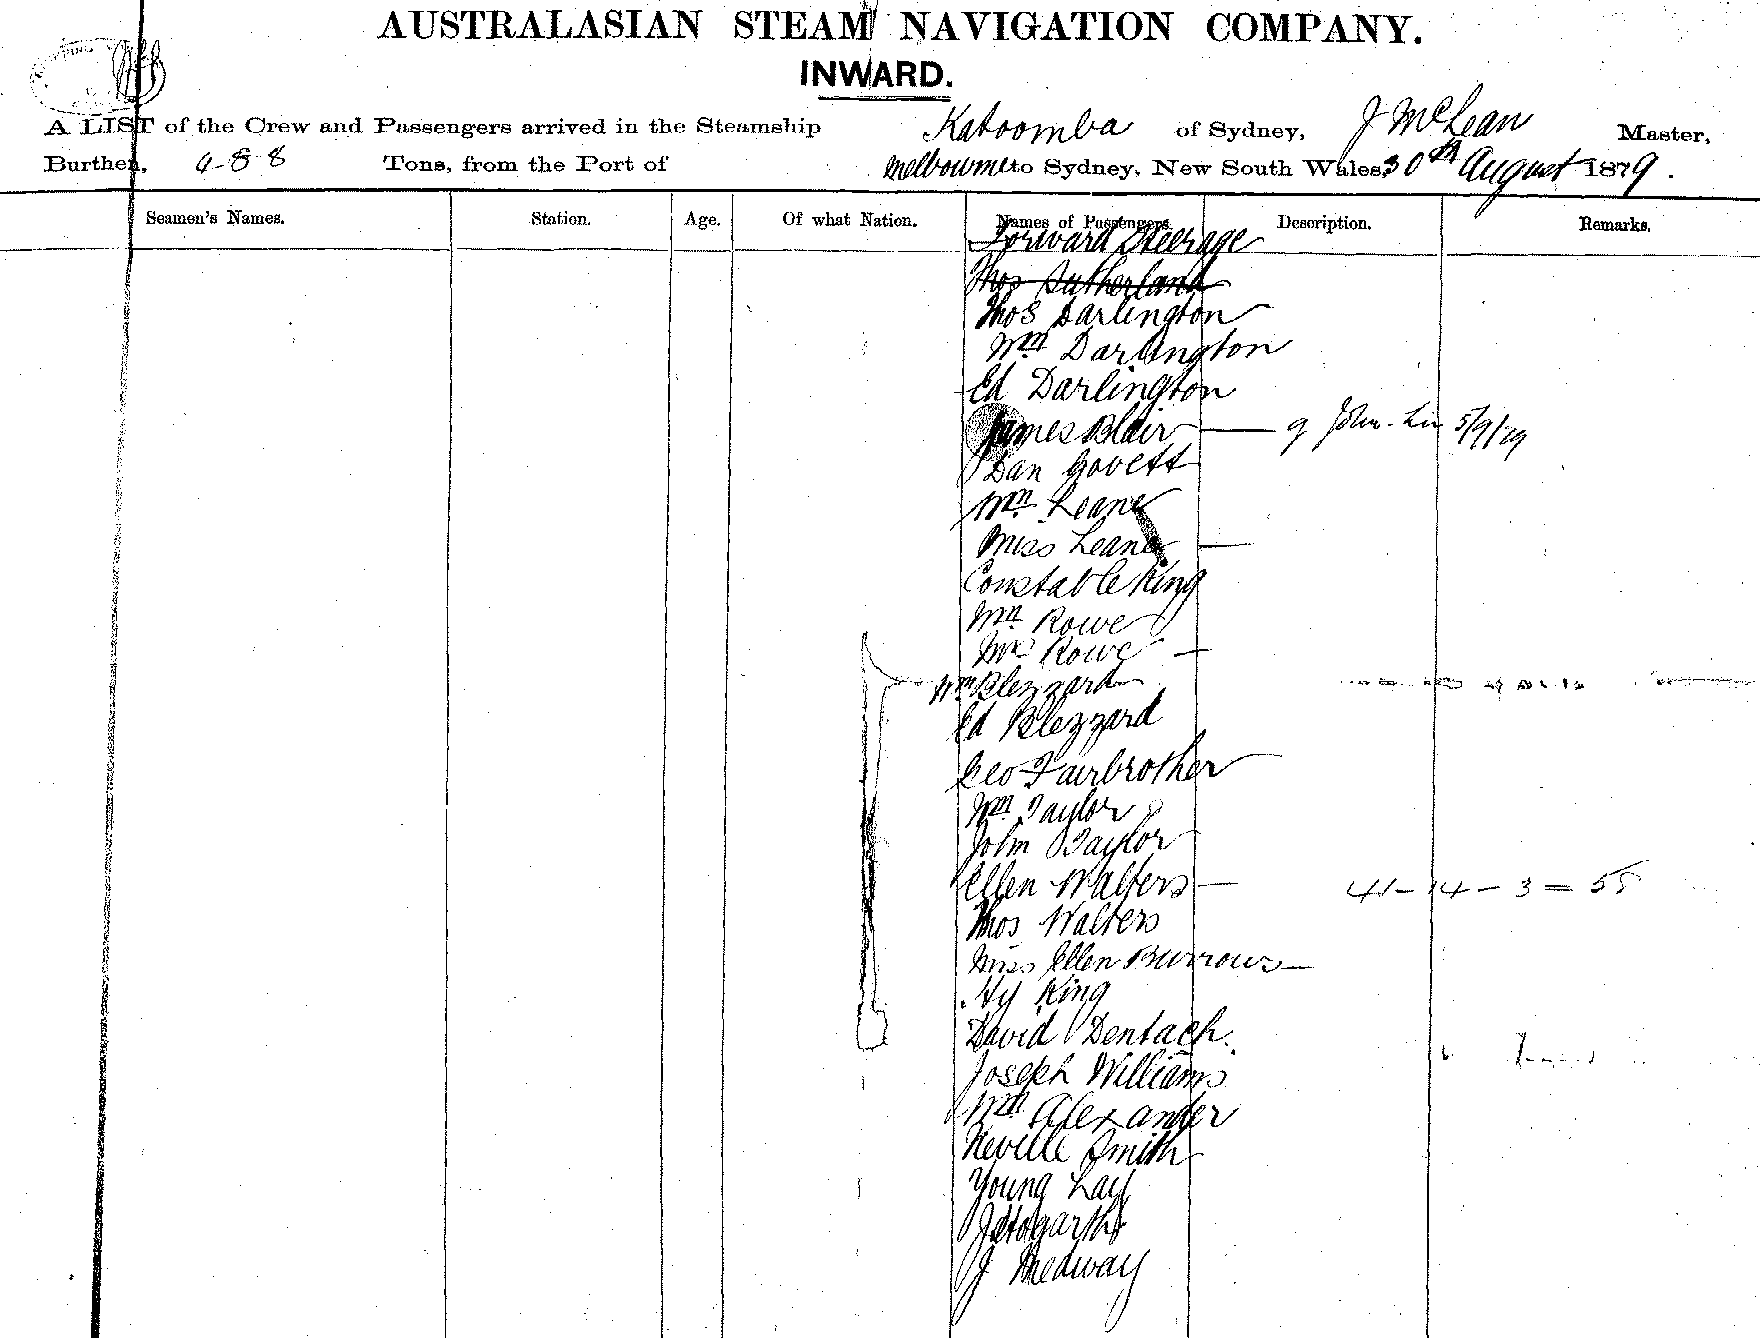 AUSTRALASIAN STEAM NAVIGATION COMPANY.
INWARD.
A LIST of the Crew and Passengers arrived in the Steamship Katoomba of Sydney, J McLean Master,
Burthen, 488 Tons, from the Port of Melbourne to Sydney, New South Wales, 30th August 1879.
Seamen's Names. Station. Age. Of what Nation. Names of Passengers. Description. Remarks.
Forward Steerage
Thos Sutherland
Thos Darlington
Wm Darlington
Ed Darlington
James Blair — 5/9/79
Dan Govett
Leane
Miss Leane —
Constable King
Mr Rowe
Mrs Rowe —
Wm Blezzard
Ed Blezzard
Geo Fairbrother
Wm Taylor
John Taylor
Ellen Walters — 41 - 14 - 3 = 58
Thos Walters
Miss Ellen Burrows —
Hy King
David Dentach.
Joseph Williams
Wm Alexander
Neville Smith
Young Lay
J Hogarth
J Medway